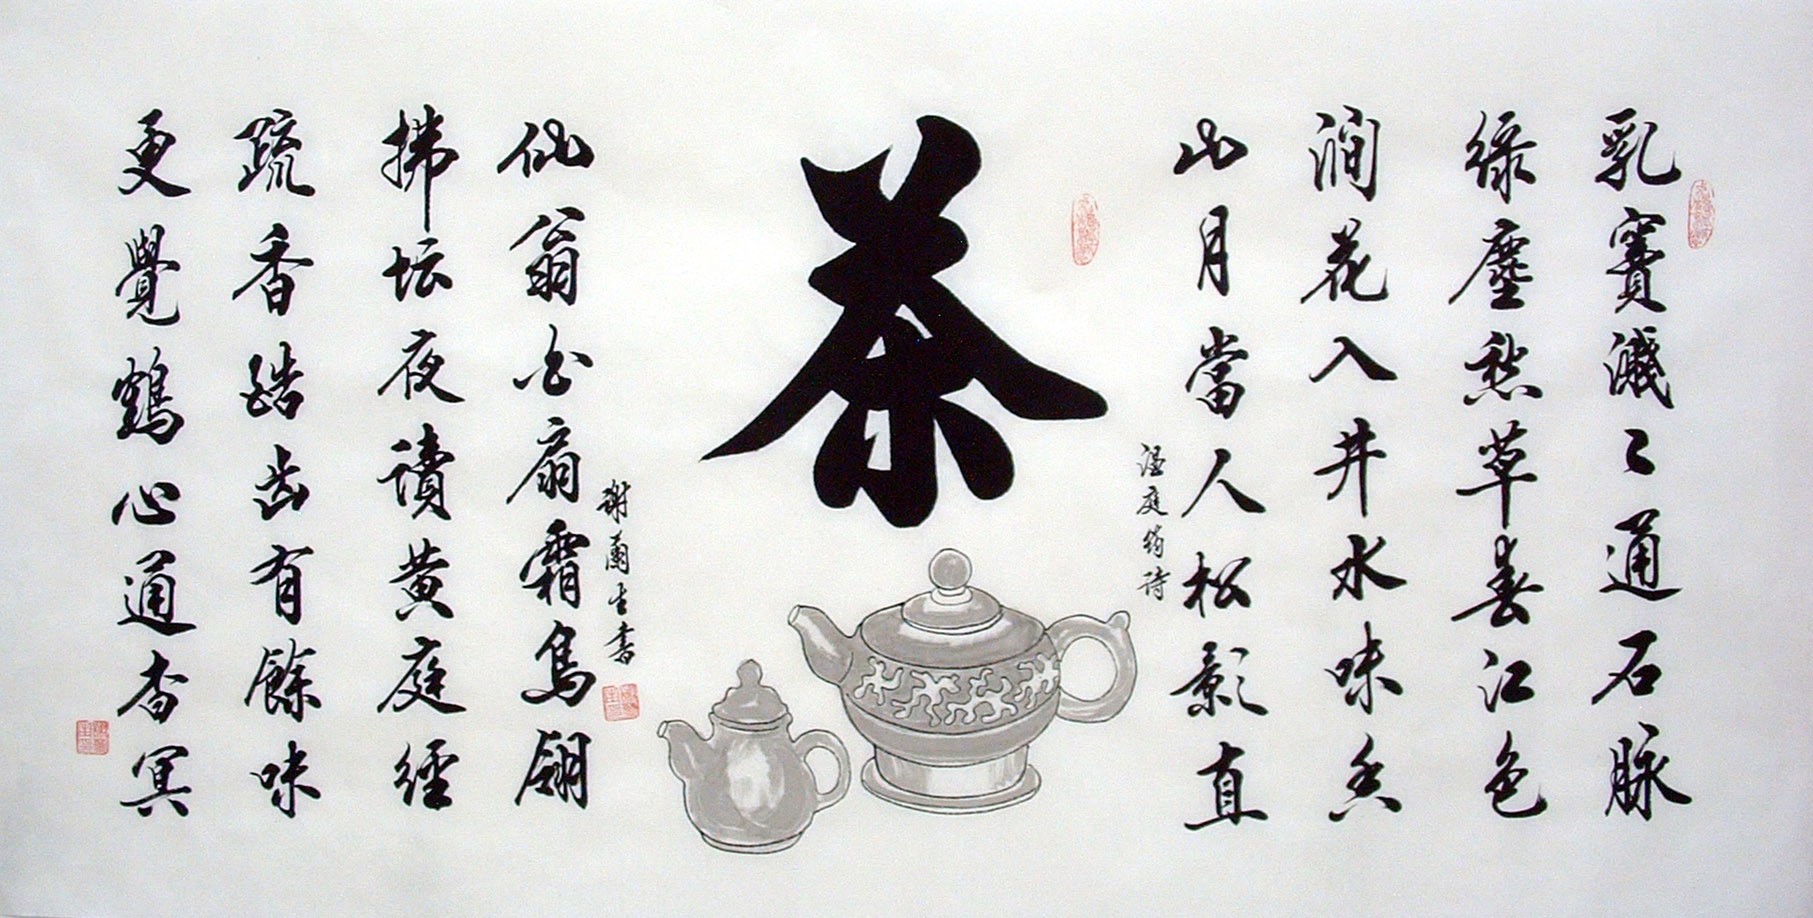 乳竇濺々通石脉
緑塵愁草春江色
澗花入井水味香
山月當人松影直
温庭筠诗
茶
仙翁白扇霜鳥翎
拂坛夜讀黄庭經
疏香皓齿有餘味
更覺鶴心通杳冥
謝蘭生書